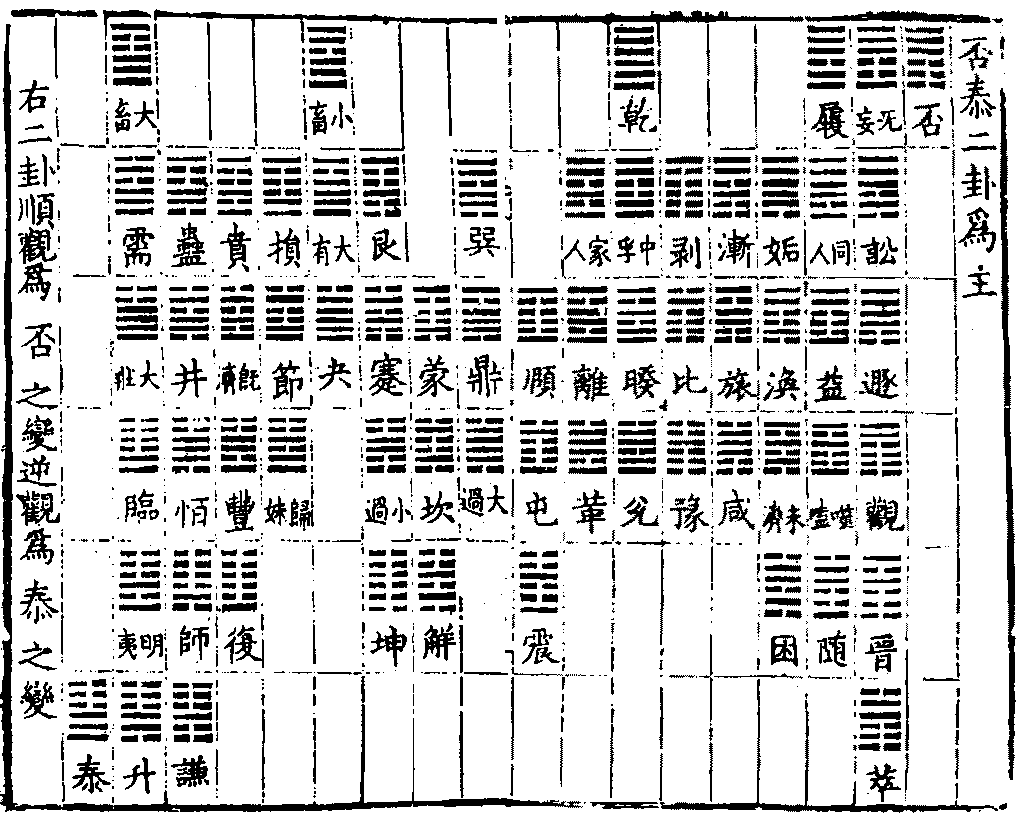 否泰二卦爲主
否
无妄 訟 遯 觀 晉 萃
履 同人 益 噬嗑 随
姤 渙 未濟 困
漸 旅 咸
剥 比 豫
乾 中孚 睽 兌
家人 離 革
頤 屯 震
巽 鼎 大過
蒙 坎 解
艮 蹇 小過 坤
小畜 大有 夬
損 節 歸妹
賁 既濟 豐 復
蠱 井 恒 師 謙
大畜 需 大壯 臨 明夷 升
泰
右二卦順觀爲否之變逆觀爲泰之變